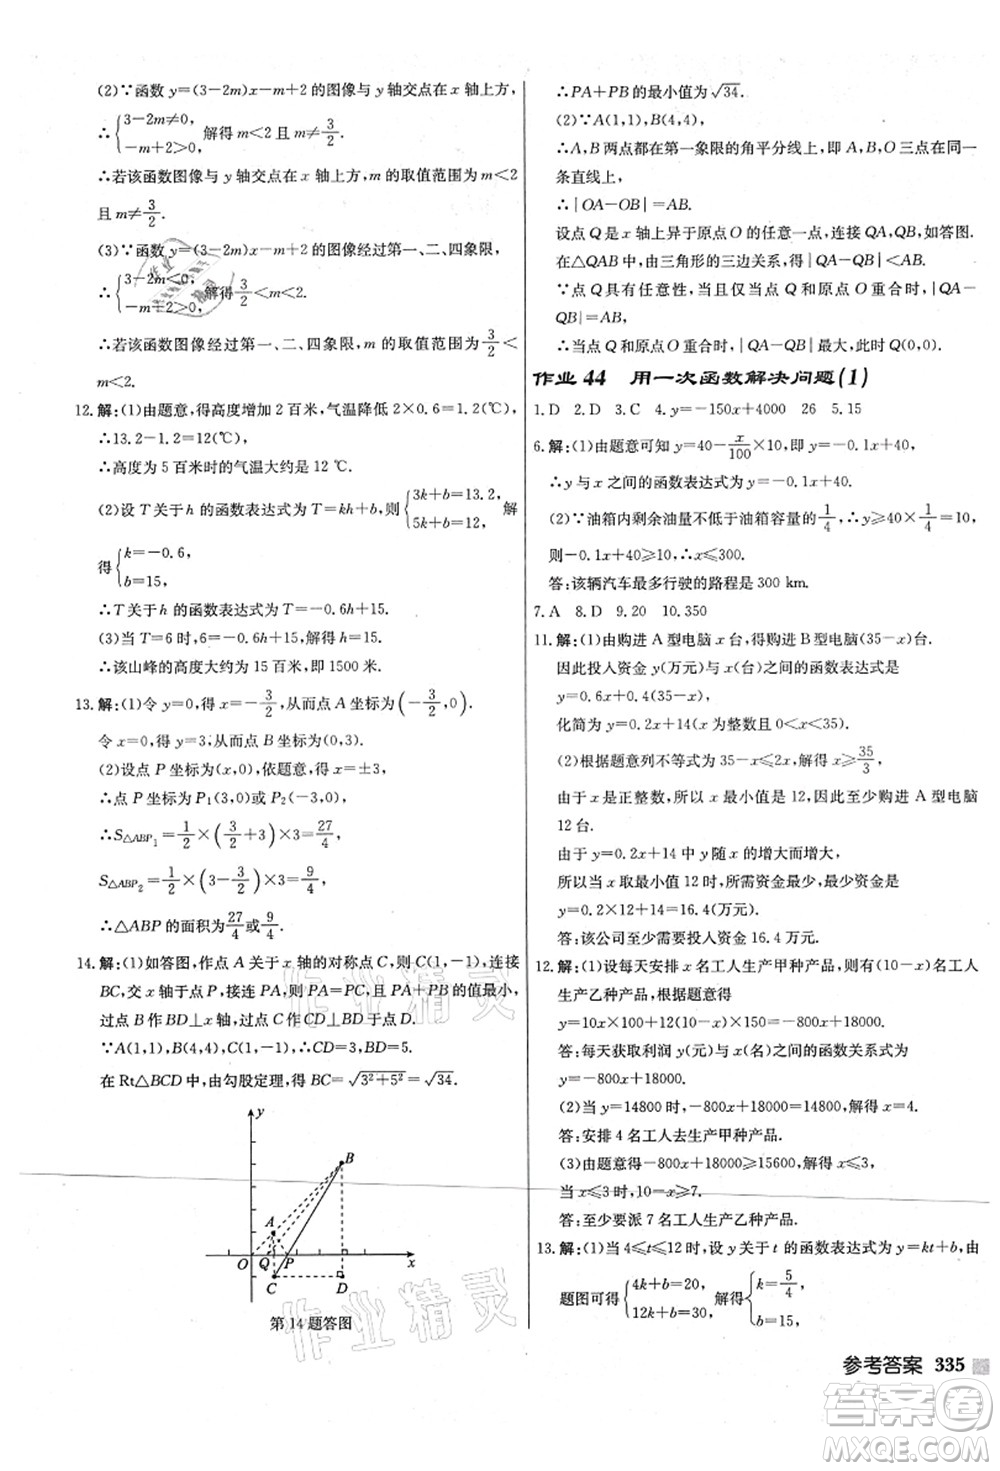 (2)∵函数 y=(3-2m)x-m+2 的图像与 y 轴交点在 x 轴上方,
∴{3-2m≠0, -m+2>0, 解得 m<2 且 m≠3/2.
∴若该函数图像与 y 轴交点在 x 轴上方, m 的取值范围为 m<2
且 m≠3/2.
(3)∵函数 y=(3-2m)x-m+2 的图像经过第一、二、四象限,
∴{3-2m<0, -m+2>0, 解得 3/2<m<2.
∴若该函数图像经过第一、二、四象限, m 的取值范围为 3/2<m
<2.
12.解:(1)由题意,得高度增加 2 百米,气温降低 2×0.6=1.2(℃),
∴13.2-1.2=12(℃),
∴高度为 5 百米时的气温大约是 12℃.
(2)设 T 关于 h 的函数表达式为 T=kh+b,则{3k+b=13.2, 5k+b=12, 解
得{k=-0.6, b=15,
∴T 关于 h 的函数表达式为 T=-0.6h+15.
(3)当 T=6 时,6=-0.6h+15,解得 h=15.
∴该山峰的高度大约为 15 百米,即 1500 米.
13.解:(1)令 y=0,得 x=-3/2,从而点 A 坐标为(-3/2,0).
令 x=0,得 y=3,从而点 B 坐标为(0,3).
(2)设点 P 坐标为(x,0),依题意,得 x=±3,
∴点 P 坐标为 P₁(3,0)或 P₂(-3,0).
∴S△ABP₁=1/2×(3/2+3)×3=27/4,
S△ABP₂=1/2×(3-3/2)×3=9/4,
∴△ABP 的面积为27/4或9/4.
14.解:(1)如答图,作点 A 关于 x 轴的对称点 C,则 C(1,-1),连接
BC,交 x 轴于点 P,接连 PA,则 PA=PC,且 PA+PB 的值最小,
过点 B 作 BD⊥x 轴,过点 C 作 CD∥x 轴,两线交于点 D.
∵A(1,1),B(4,4),C(1,-1),∴CD=3,BD=5.
在 Rt△BCD 中,由勾股定理,得 BC=√3²+5²=√34.
y
B
A
O Q P x
C D
第 14 题答图
∴PA+PB 的最小值为√34.
(2)∵A(1,1),B(4,4),
∴A,B 两点都在第一象限的角平分线上,即 A,B,O 三点在同一
条直线上,
∴|OA-OB|=AB.
设点 Q 是 x 轴上异于原点 O 的任意一点,连接 QA,QB,如答图.
在△QAB 中,由三角形的三边关系,得|QA-QB|<AB.
∵点 Q 具有任意性,当点 Q 和原点 O 重合时,|QA-
QB|=AB,
∴点 Q 和原点 O 重合时,|QA-QB|最大,此时点 Q(0,0).
作业 44 用一次函数解决问题(1)
1.D 2.D 3.C 4.y=-150x+4000 26 5.15
6.解:(1)由题意可知 y=40-x/100×10,即 y=-0.1x+40.
∴y 与 x 之间的函数表达式为 y=-0.1x+40.
(2)∵油箱内剩余油量不低于油箱容量的1/4,∴y≥40×1/4=10,
则-0.1x+40≥10,∴x≤300.
答:该辆汽车最多行驶的路程是 300 km.
7.A 8.D 9.20 10.350
11.解:(1)由购进 A 型电脑 x 台,得购进 B 型电脑(35-x)台.
因此投入资金 y(万元)与 x(台)之间的函数表达式是
y=0.6x+0.4(35-x),
化简为 y=0.2x+14(x 为整数且 0<x<35).
(2)根据题意列不等式为 35-x≤2x,解得 x≥35/3
由于 x 是正整数,所以 x 最小值是 12,因此至少购进 A 型电脑
12 台.
由于 y=0.2x+14 中 y 随 x 的增大而增大,
所以当 x 取最小值 12 时,所需资金最少,最少为
y=0.2×12+14=16.4(万元).
答:该公司至少需要投入资金 16.4 万元.
12.解:(1)设每天安排 x 名工人生产甲种产品,则有(10-x)名工人
生产乙种产品,根据题意得
y=10x×100+(10-x)×10×180=-800x+18000.
答:每天获取利润 y(元)与 x(名)之间的函数关系式为
y=-800x+18000.
(2)当 y=14800 时,-800x+18000=14800,解得 x=4.
答:安排 4 名工人去生产甲种产品.
(3)由题意得-800x+18000≥15600,解得 x≤3,
当 x≤3 时,10-x≥7.
答:至少要派 7 名工人生产乙种产品.
13.解:(1)当 4≤t≤12 时,设 y 关于 t 的函数表达式为 y=kt+b,由
题图可得{4k+b=20, 12k+b=30, 解得{k=5/4, b=15,
参考答案 335
作业精灵
作业精灵
答案圈
MXQE.COM